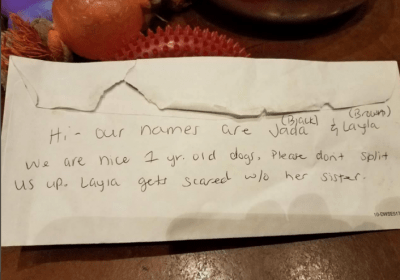 (Black) (Brown)
Hi- our names are Jada & Layla
We are nice 1 yr. old dogs. Please dont split
us up. Layla gets scared w/o her sister.